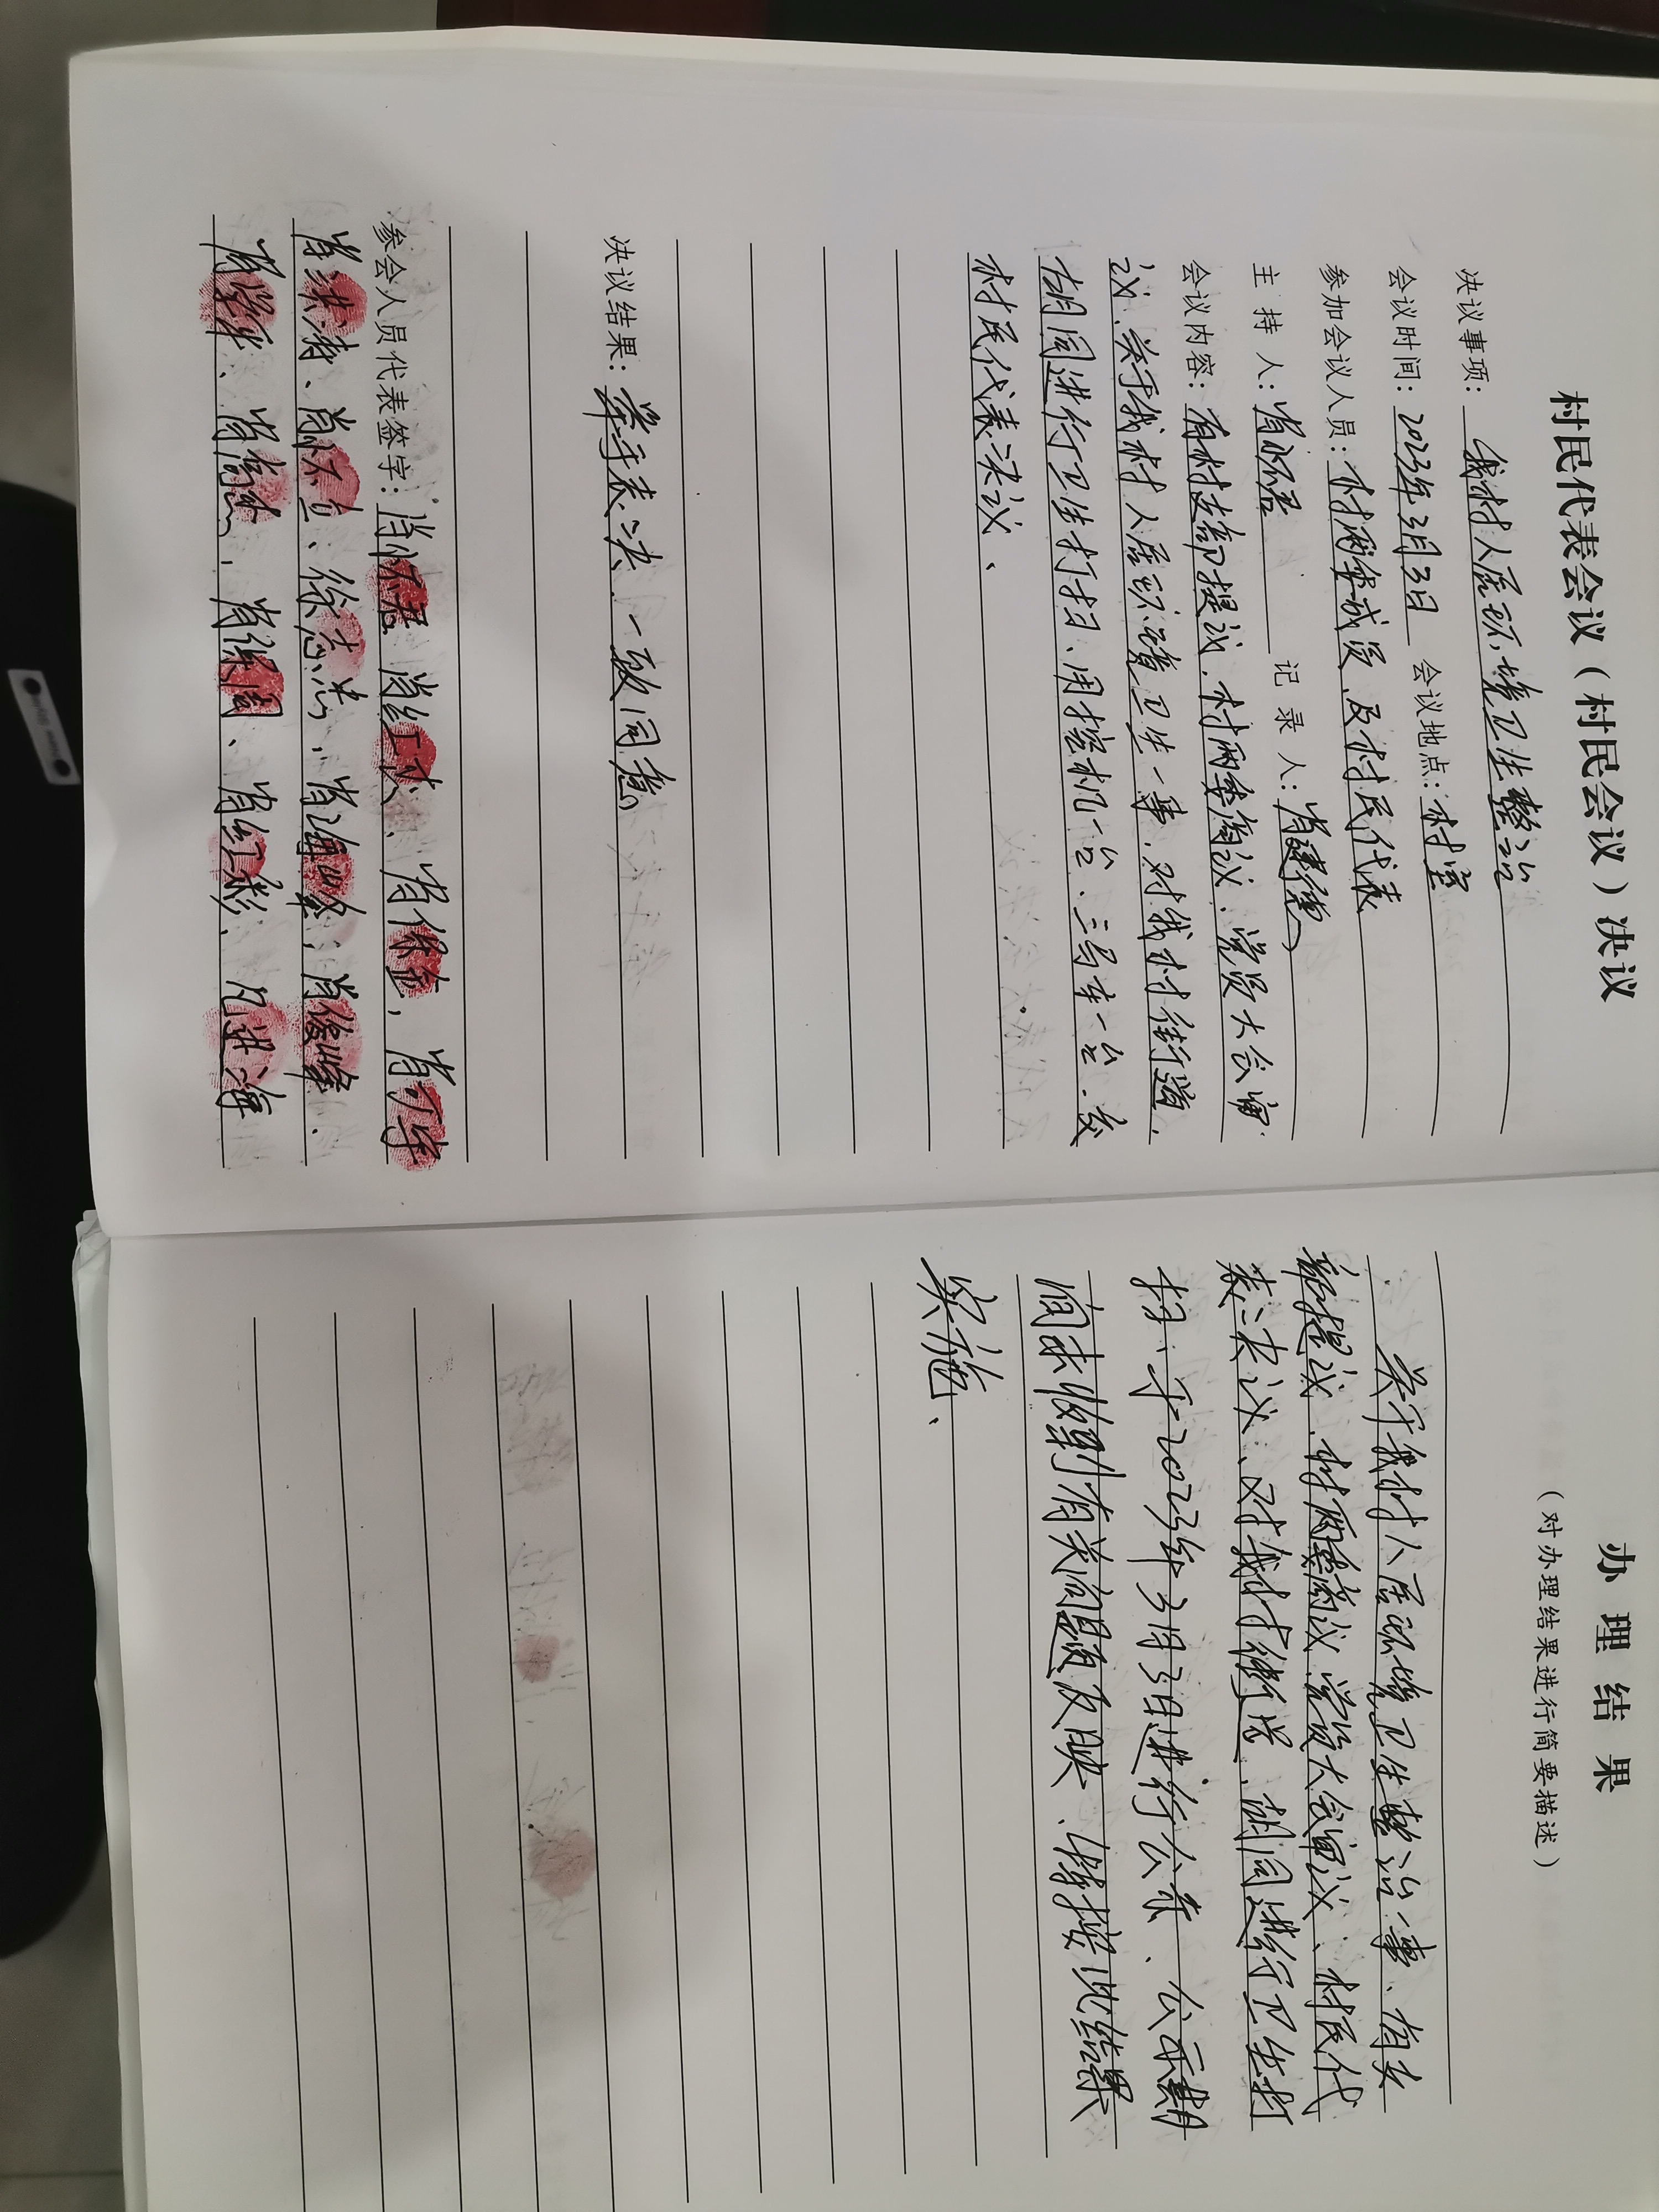 村民代表会议（村民会议）决议
决议事项： 我村人居环境卫生整治
会议时间： 2023年3月3日 会议地点： 村室
参加会议人员： 村两委成员、及村民代表
主持人： 肖怀君 记录人： 肖建德
会议内容： 有村支部提议、村两委商议、党员大会审
议、关于我村人居环境卫生一事、对我村街道、
胡同进行卫生打扫、用挖机一台、三马车一台、交
村民代表决议、
决议结果： 举手表决、一致同意
参会人员代表签字： 肖怀君 肖红杰、肖保金，肖可宇
肖洪涛、肖怀立、徐志忠、肖海峰，肖俊峰、
肖学平、肖高杰，肖保周、肖红彩、凡进海
办理结果
（对办理结果进行简要描述）
关于我村人居环境卫生整治一事、有支
部提议、村两委商议、党员大会审议、村民代
表决议、对我村街道、胡同进行卫生打
扫、于2023年3月3日进行公示、公示期
间未收到有关问题反映、特按此结果
实施、